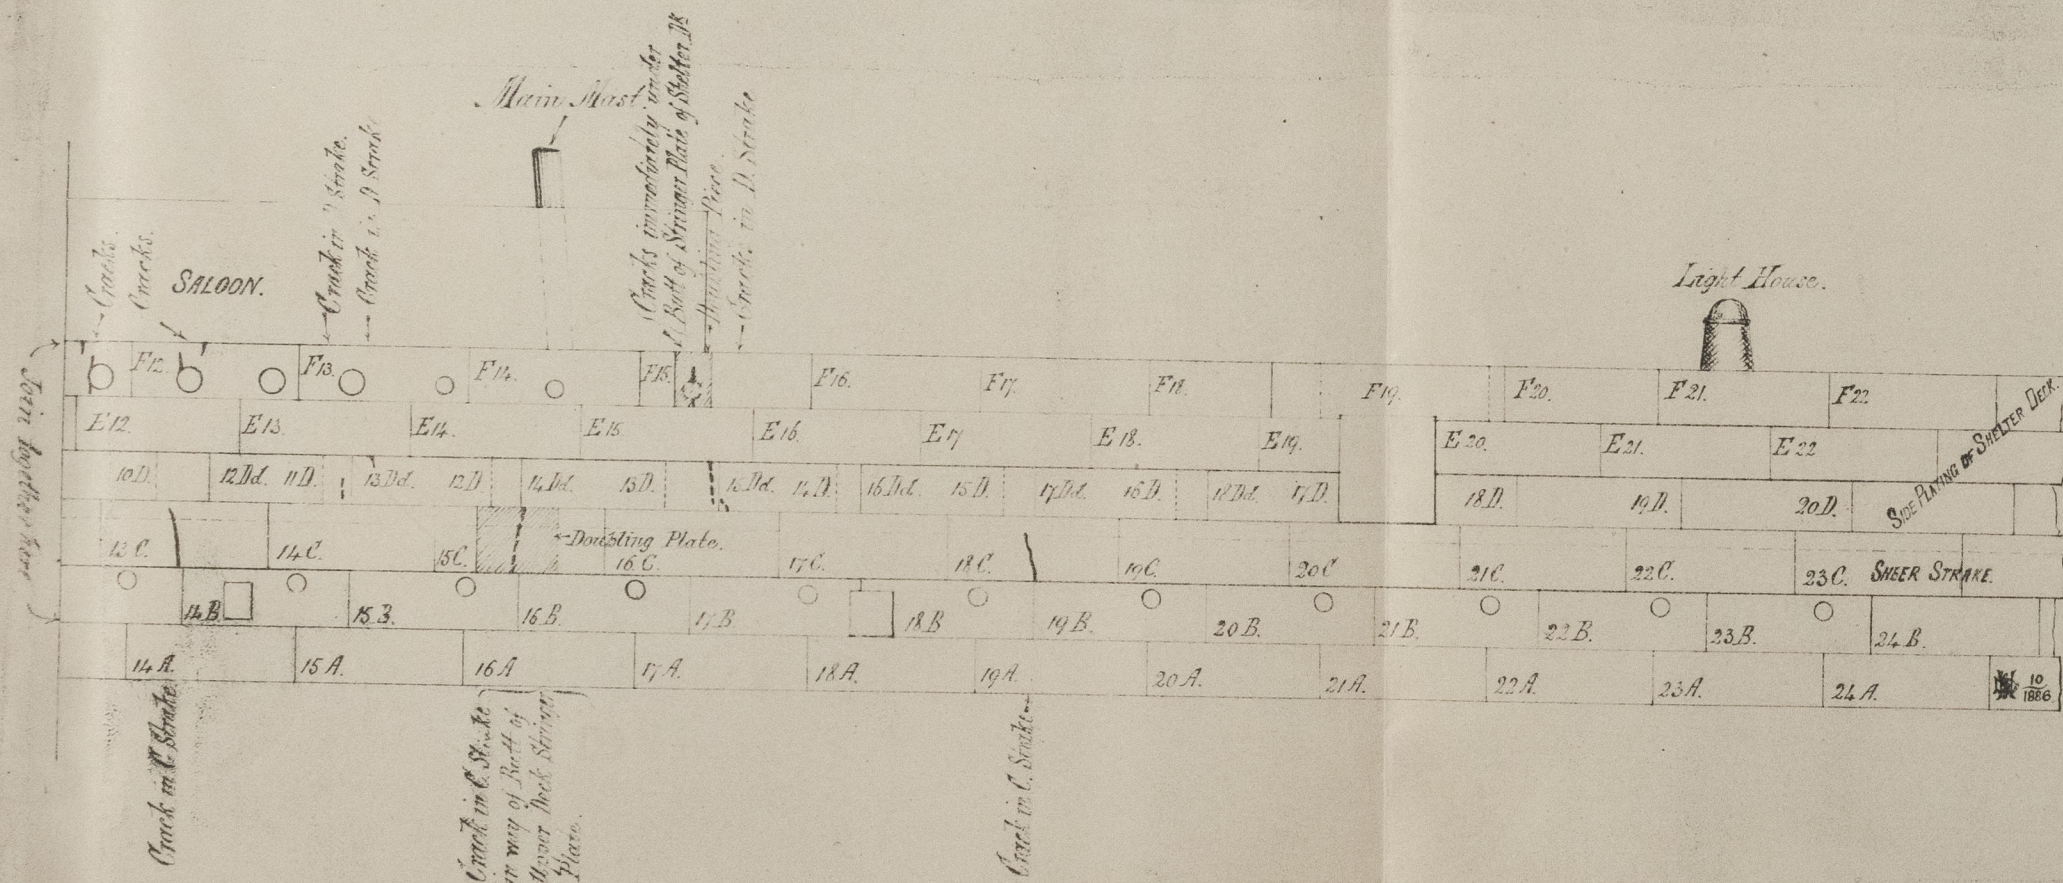 Main Mast.
Cracks immediately under
Butt of Stringer Plate of Shelter Dk
Doubling Piece.
Crack in D. Strake
Crack in D Strake.
Crack in D Strake
Cracks.
Cracks.
SALOON.
Light House.
Join together here
F12. F13. F14. F15. F16. F17. F18. F19. F20. F21. F22
E12. E13. E14. E15 E16. E17 E18. E19. E20. E21. E22
SIDE PLATING OF SHELTER DECK.
10D. 12Dd. 11D. 13Dd. 12D. 14Dd. 13D. 15Dd. 14D. 16Dd. 15D. 17Dd. 16D. 18Dd 17D. 18D. 19D. 20D.
Doubling Plate.
13C. 14C. 15C. 16C. 17C. 18C. 19C. 20C 21C. 22C. 23C. SHEER STRAKE.
14B. 15B. 16B. 17B 18B 19B. 20B. 21B. 22B. 23B. 24B.
14A. 15A. 16A 17A. 18A. 19A. 20A. 21A. 22A. 23A. 24A.
10
1886
Crack in C. Strake.
Crack in C. Strake
in way of Butt of
Upper Deck Stringer
Plate.
Crack in C. Strake